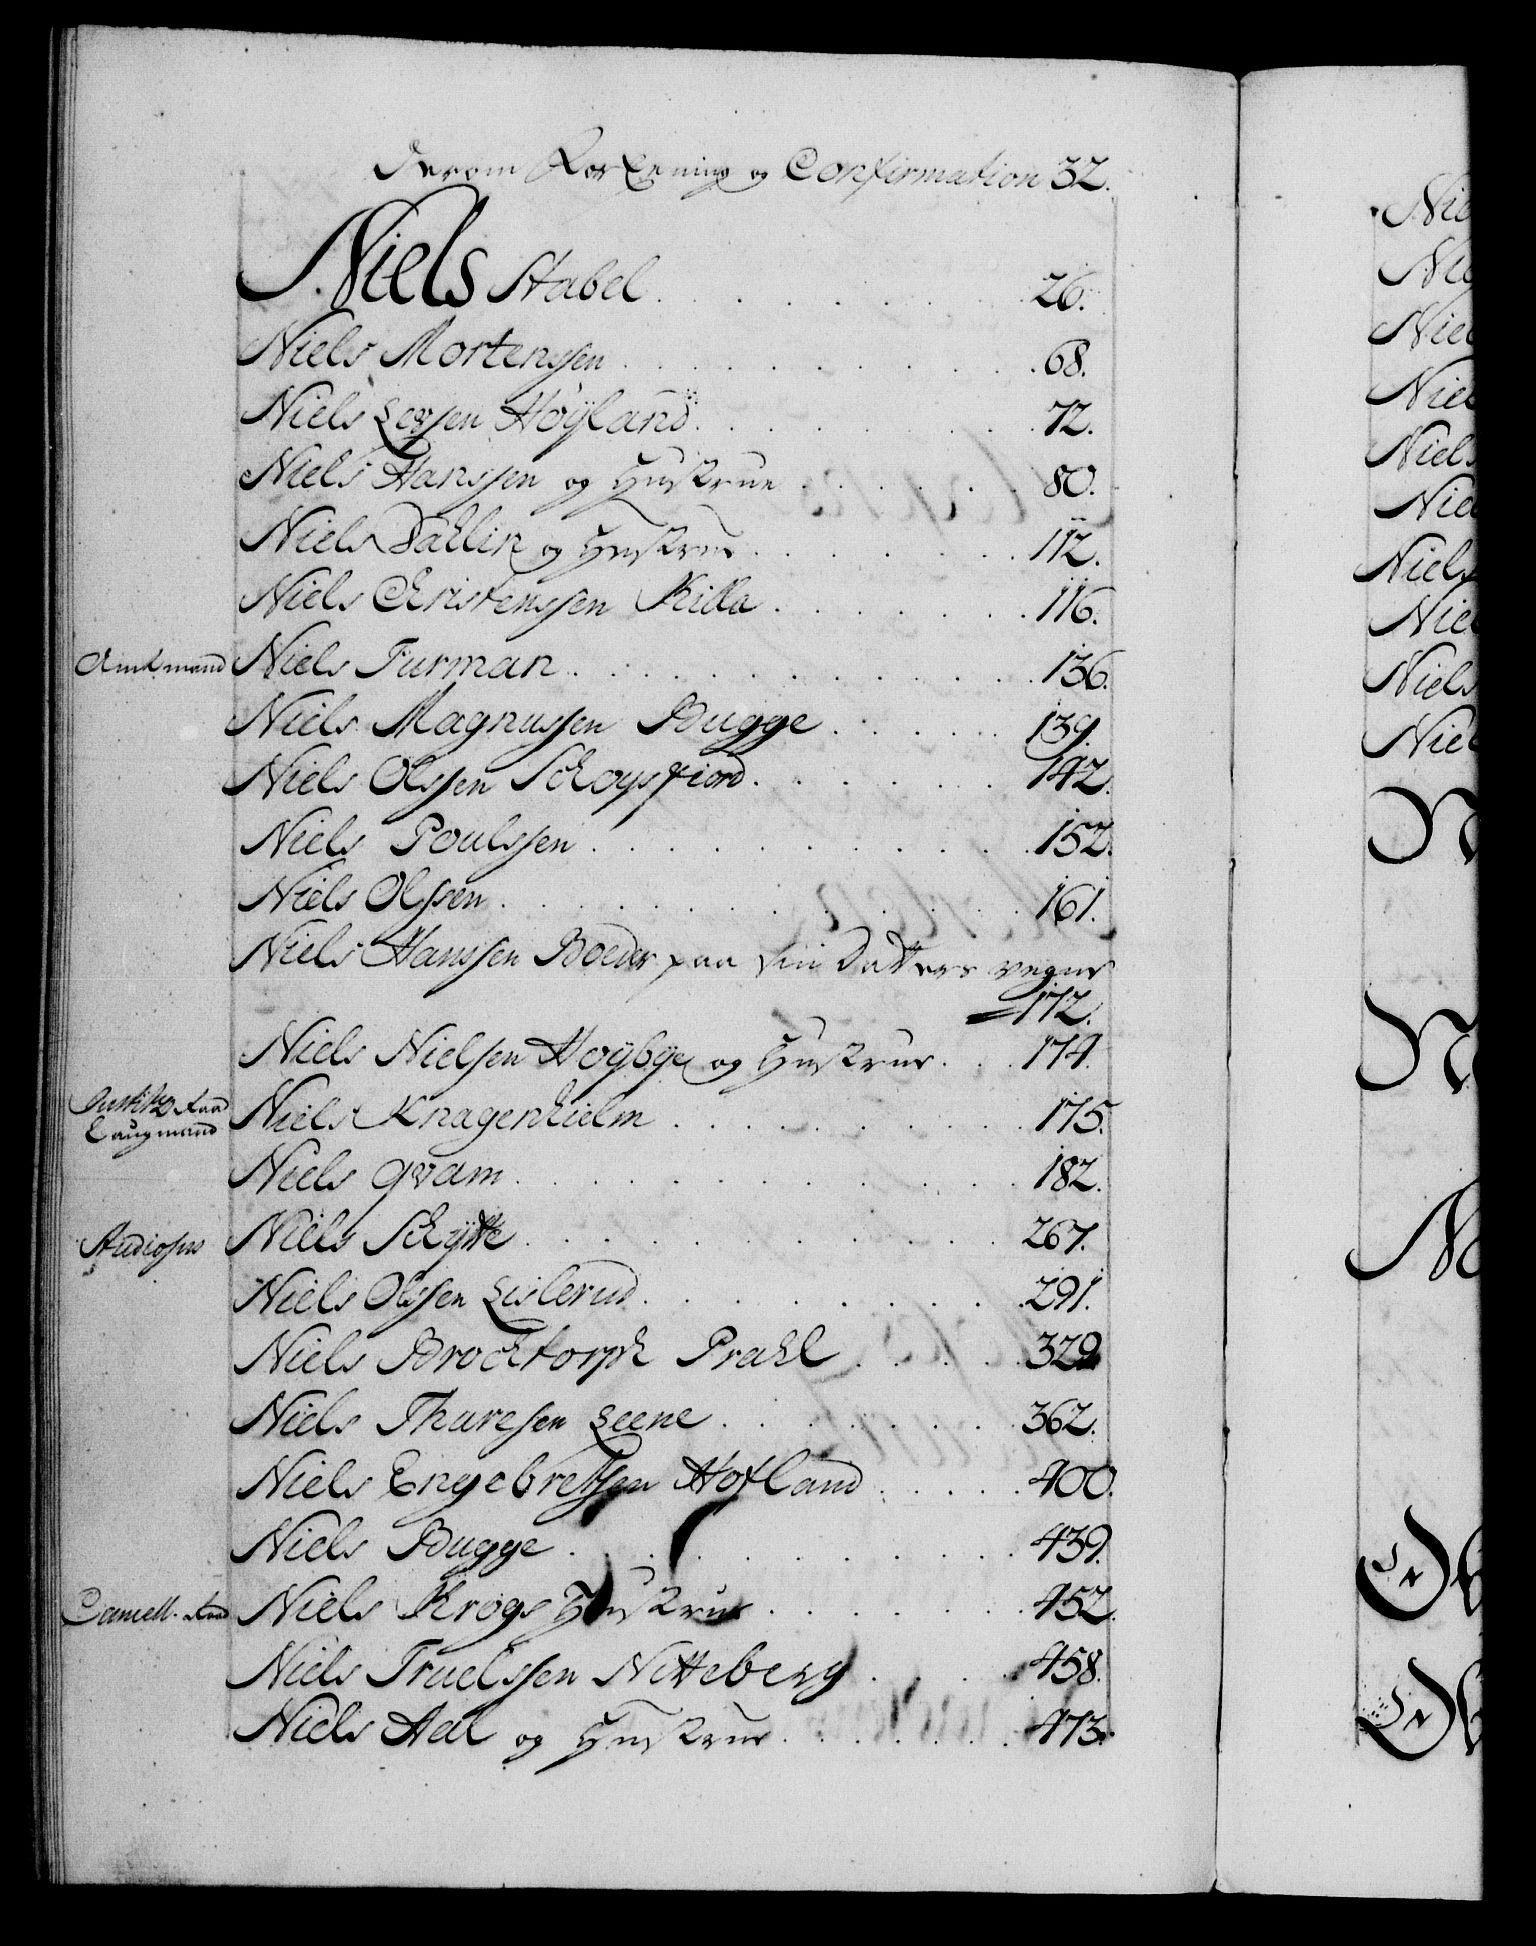 derom Forlening og Confirmation 32.
Niels Stabel . . . 26.
Niels Mortenssen . . . 68.
Niels Høyland . . . 72.
Niels Hanssen og Hustrue . . . 80.
Niels Dahlin og Hustrue . . . 112.
Niels Christenssen Killa . . . 116.
Amtmand Niels Furman . . . 136.
Niels Magnussen Bugge . . . 139.
Niels Olssen Schoysfiord . . . 142.
Niels Poulssen . . . 152.
Niels Olssen . . . 161.
Niels Hanssen paa sin Datters vegne
172.
Niels Nielsen Høybye og Hustrue . . . 174.
Justitz Raad
Laugmand Niels Knagenhielm . . . 175.
Niels Qvam . . . 182.
Studiosus Niels Schytte . . . 267.
Niels Olssen Lislerud . . . 291.
Niels Brochtorph Prahl . . . 329.
Niels Thuresen Leene . . . 362.
Niels Engebretssen Hofland . . . 400.
Niels Bugge . . . 439.
Cancell. Raad Niels Krogs Hustrue . . . 452.
Niels Truelssen Nitteberg . . . 458.
Niels Aal og Hustrue . . . 473.